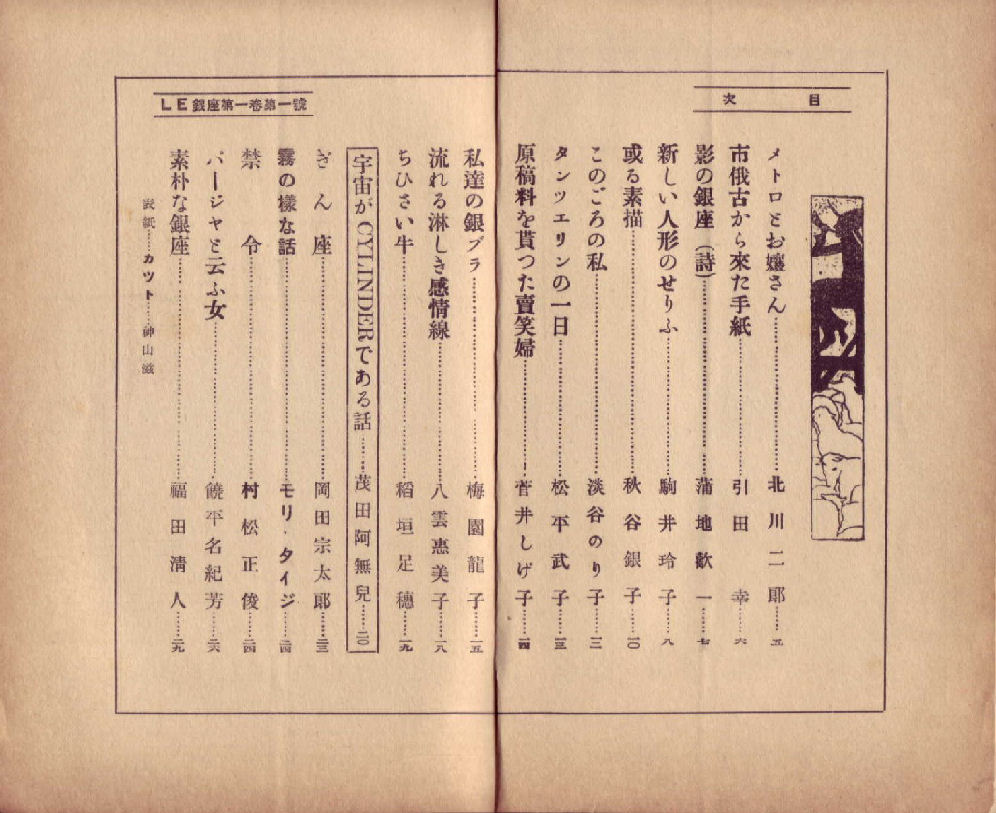 目次
メトロとお孃さん…………北川二郎……五
市俄古から來た手紙…………引田 幸……六
影の銀座(詩)…………蒲地歡一……七
新しい人形のせりふ…………駒井玲子……八
或る素描…………秋谷銀子……一〇
このごろの私…………淡谷のり子……一二
タンツエリンの一日…………松平武子……一三
原稿料を貰つた賣笑婦…………菅井しげ子……一四
私達の銀ブラ…………梅園龍子……一五
流れる淋しき感情線…………八雲惠美子……一八
ちひさい牛…………稻垣足穗……一九
宇宙がCYLINDERである話……茂田阿無兒……二〇
ぎん座…………岡田宗太郎……二三
霧の樣な話…………モリ・タイジ……二四
禁令…………村松正俊……二四
バージャと云ふ女…………饒平名紀芳……二六
素朴な銀座…………福田淸人……二九
表紙……カツト……神山滋
LE銀座第一卷第一號